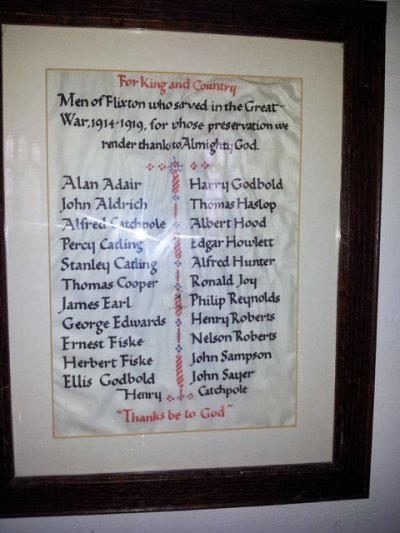 For King and Country
Men of Flixton who served in the Great
War, 1914-1919, for whose preservation we
render thanks to Almighty God.
Alan Adair
John Aldrich
Alfred Catchpole
Percy Catling
Stanley Catling
Thomas Cooper
James Earl
George Edwards
Ernest Fiske
Herbert Fiske
Ellis Godbold
Harry Godbold
Thomas Haslop
Albert Hood
Edgar Howlett
Alfred Hunter
Ronald Joy
Philip Reynolds
Henry Roberts
Nelson Roberts
John Sampson
John Sayer
Henry Catchpole
"Thanks be to God"